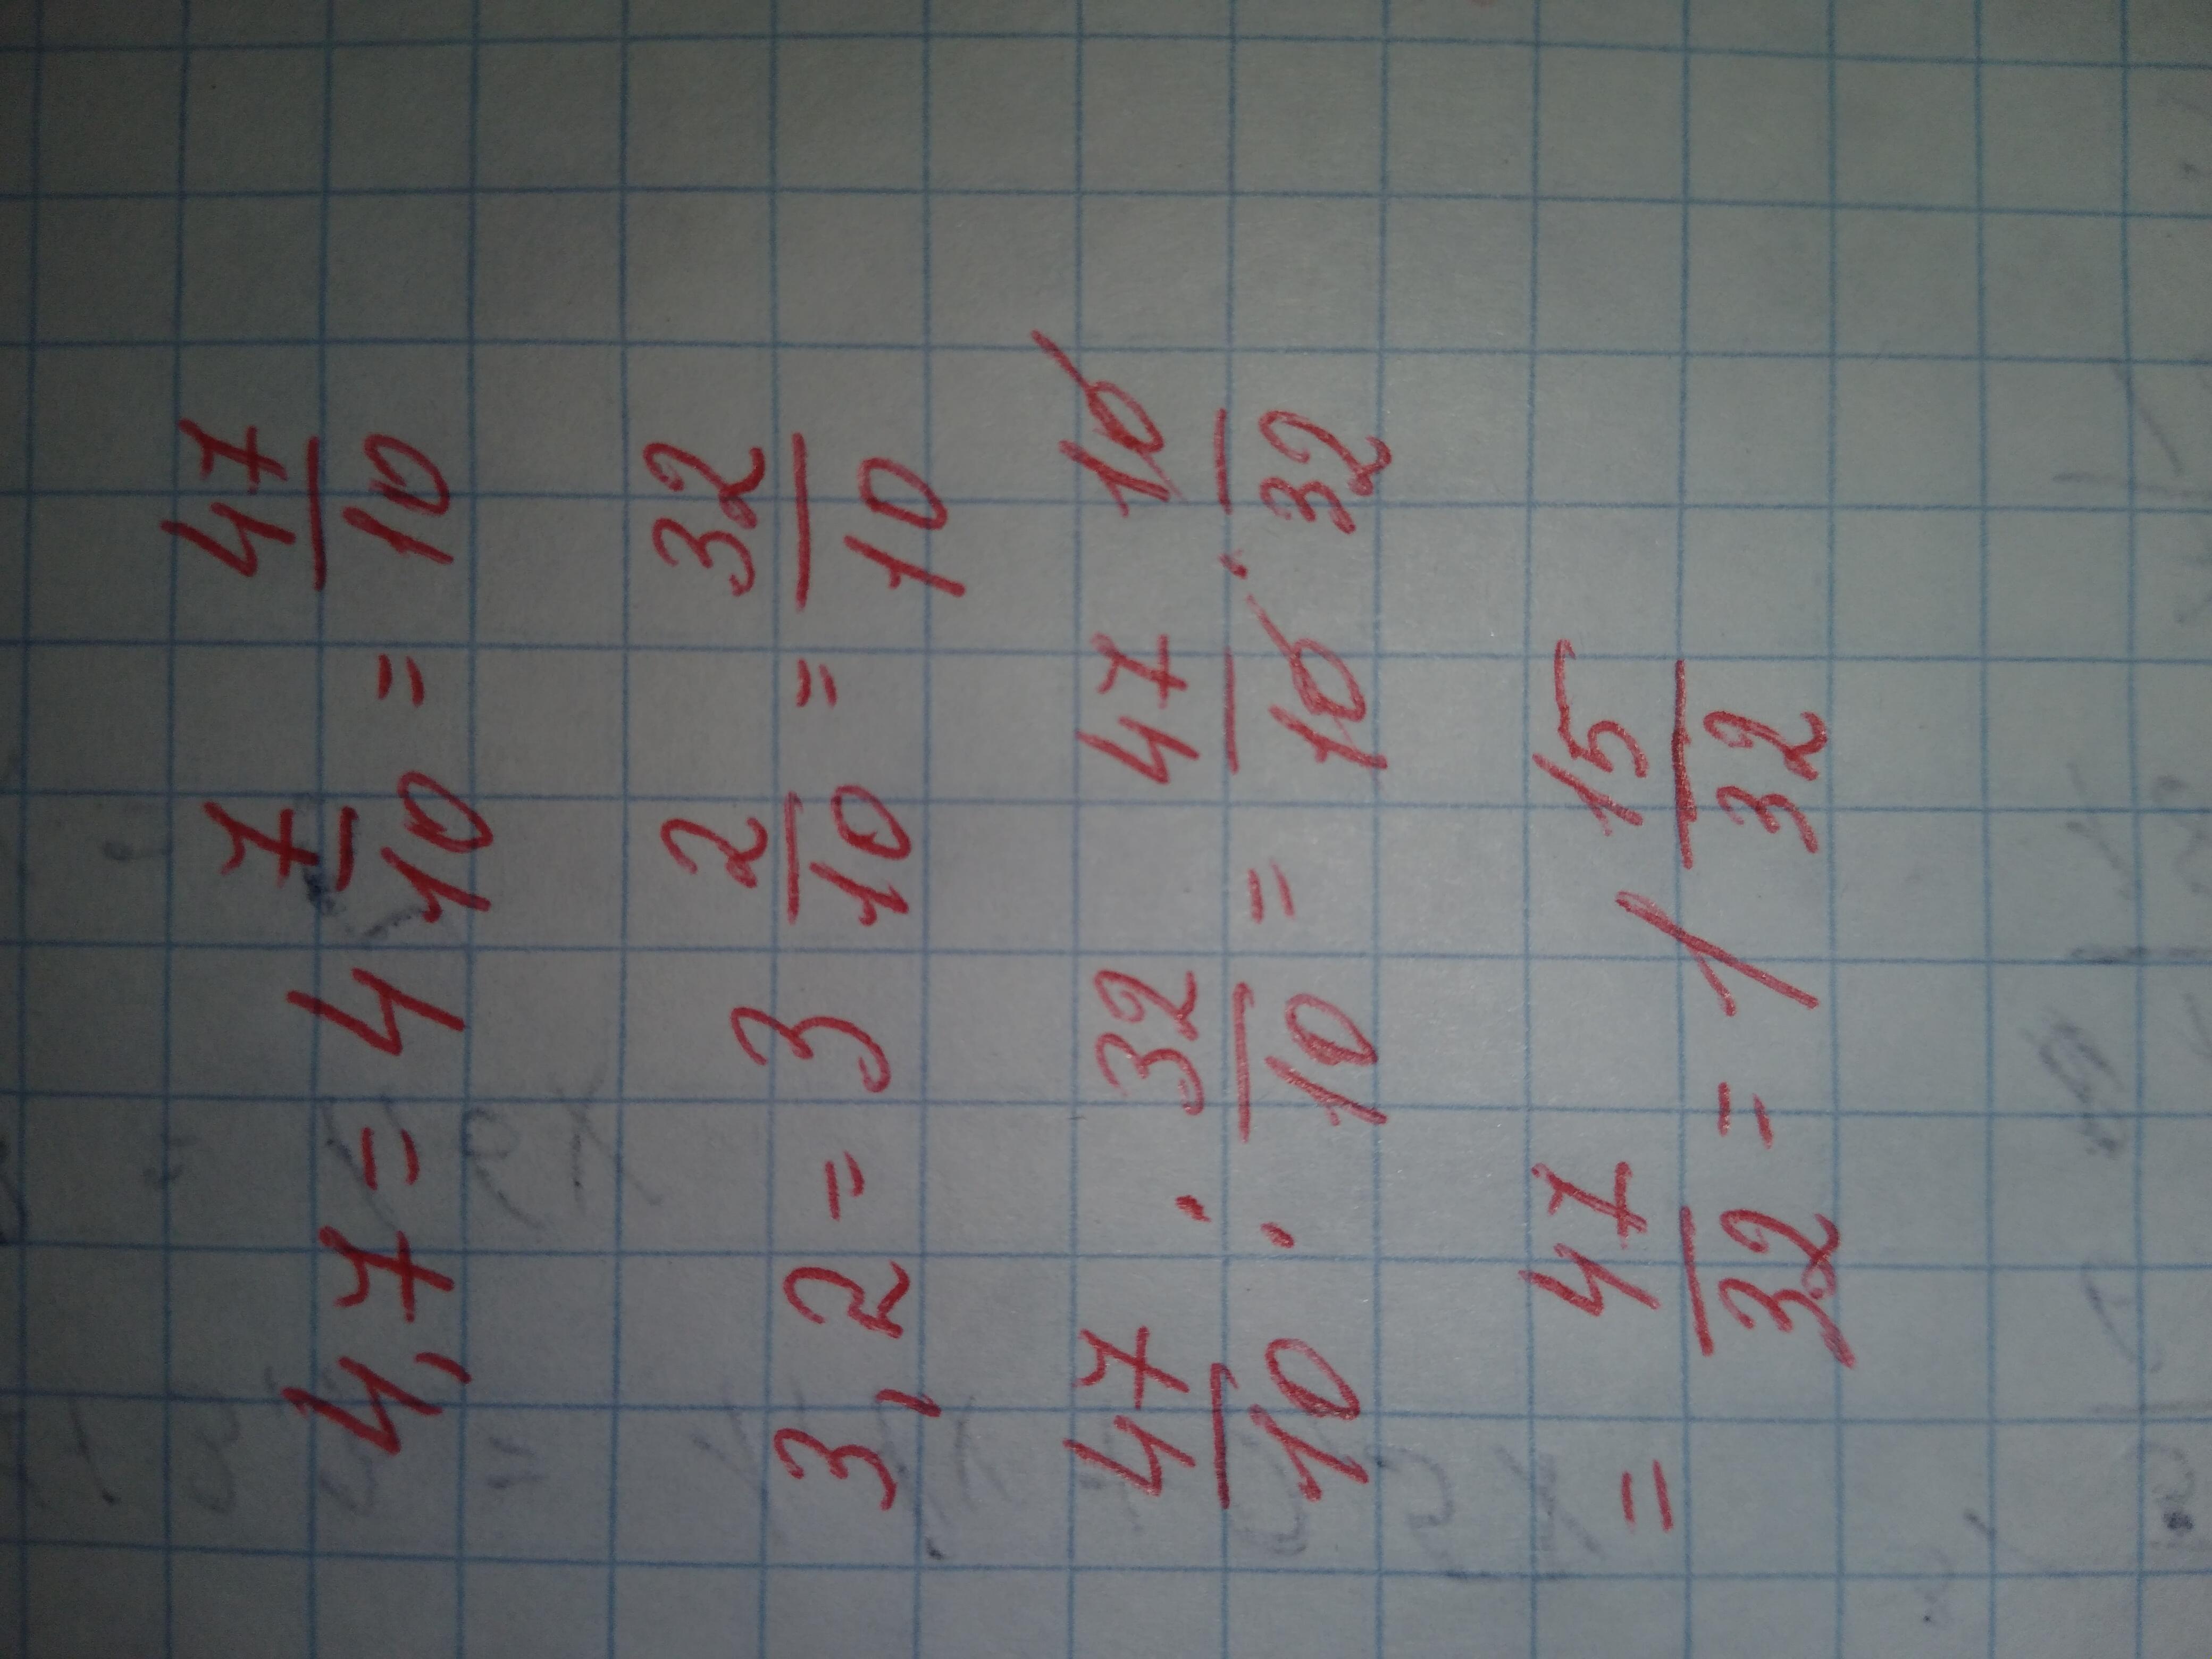 4,7 = 4 7/10 = 47/10
3,2 = 3 2/10 = 32/10
47/10 : 32/10 = 47/10 · 10/32
= 47/32 = 1 15/32